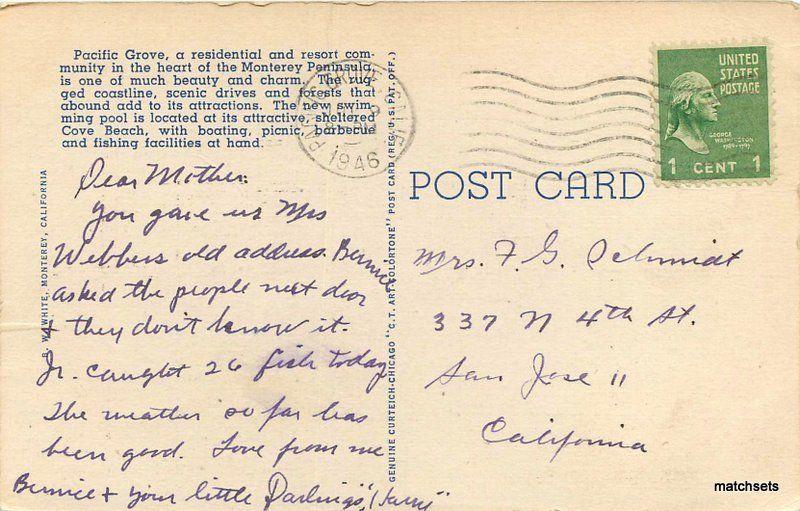 Pacific Grove, a residential and resort com-
munity in the heart of the Monterey Peninsula,
is one of much beauty and charm. The rug-
ged coastline, scenic drives and forests that
abound add to its attractions. The new swim-
ming pool is located at its attractive, sheltered
Cove Beach, with boating, picnic, barbecue
and fishing facilities at hand.
Dear Mother:
You gave us Mrs
Webbers old address. Bernice
asked the people next door
& they don't know it.
Jr. caught 26 fish today
The weather so far has
been good. Love from me
Bernice & your little Darlings,
WHITE, MONTEREY, CALIFORNIA
GENUINE CURTEICH-CHICAGO "C.T. ART-COLORTONE" POST CARD (REG. U.S. PAT. OFF.)
PACIFIC GROVE
1946
UNITED
STATES
POSTAGE
GEORGE
WASHINGTON
1789-1797
1 CENT 1
POST CARD
Mrs. F. G. Schmidt
337 N 4th St.
San Jose 11
California
matchsets